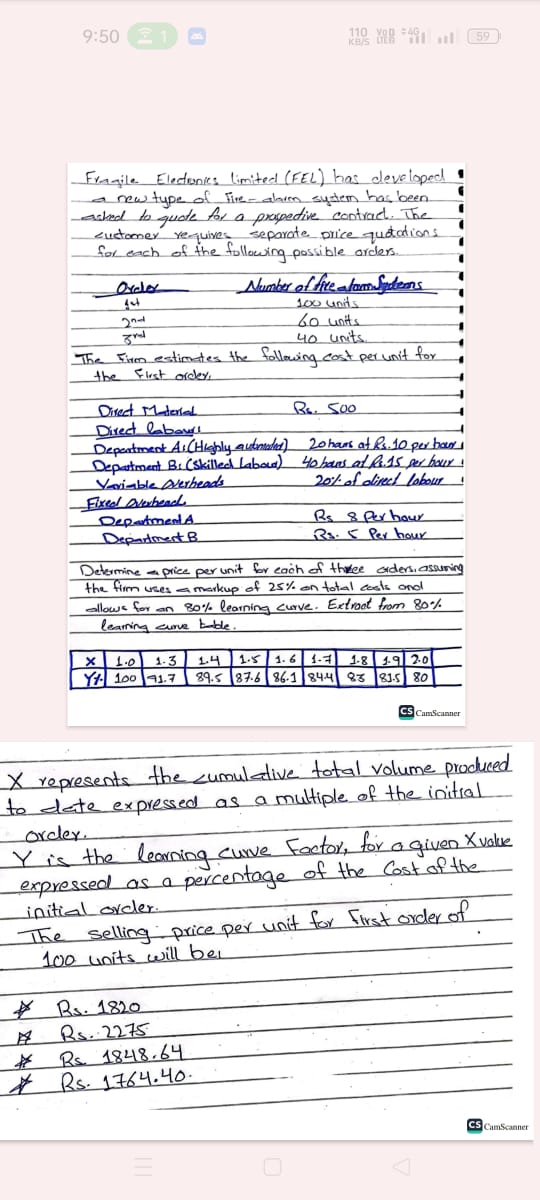 9:50 1
110 KB/S Vo LTE 4G 59
Fragile Electronics limited (FEL) has developed
a new type of Fire-alarm system has been
asked to quote for a prospedive contract. The
customer requires separate price quotations
for each of the following possible orders.
Order Number of fire alarm Systems
1st 100 units
2nd 60 units
3rd 40 units.
The Firm estimates the following cost per unit for
the First order,
Direct Material Rs. 500
Direct labour
Department A: (Highly automated) 20 hours at Rs.10 per hour
Department B: (Skilled Labour) 40 hours at Rs.15 per hour
Variable Overheads 20% of direct labour
Fixed Overhead
Department A Rs 8 Per hour
Department B Rs. 5 Per hour
Determine a price per unit for each of three orders, assuming
the firm uses a markup of 25% on total costs and
allows for an 80% learning curve. Extract from 80%
learning curve table.
X 1.0 1.3 1.4 1.5 1.6 1.7 1.8 1.9 2.0
Y% 100 91.7 89.5 87.6 86.1 84.4 83 81.5 80
CS CamScanner
X represents the cumulative total volume produced
to date expressed as a multiple of the initial
order.
Y is the learning curve Factor, for a given X value
expressed as a percentage of the Cost of the
initial order.
The selling price per unit for First order of
100 units will be:
Rs. 1820
Rs. 2275
Rs 1848.64
Rs. 1764.40.
CS CamScanner